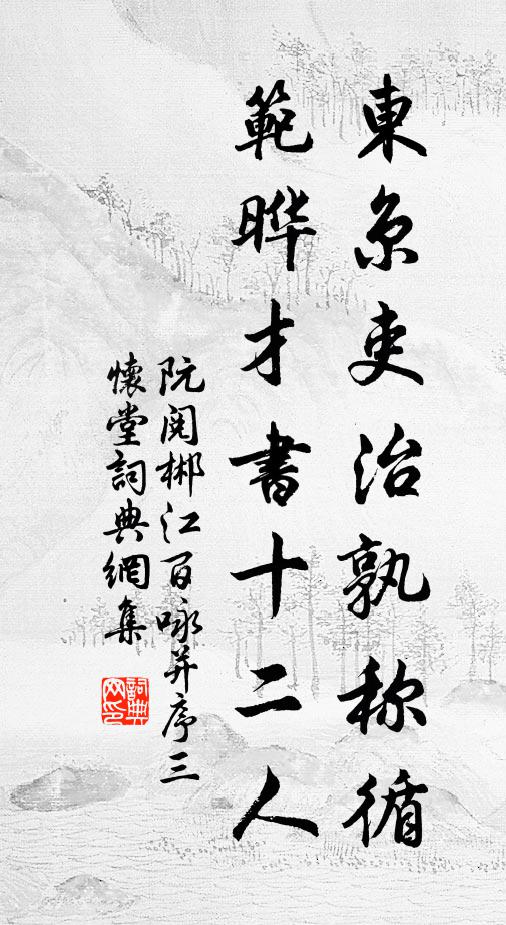 東京吏治孰称循
範曄才書十二人
阮閱郴江百咏并序三
懷堂詞典網集
詞典
网印